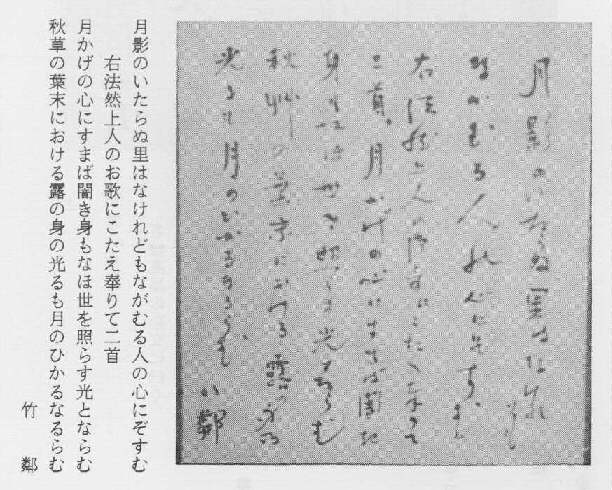 月影のいたらぬ里はなけれどもながむる人の心にぞすむ
右法然上人のお歌にこたえ奉りて二首
月かげの心にすまば闇き身もなほ世を照らす光とならむ
秋草の葉末における露の身の光るも月のひかるなるらむ
竹鄰
月影のいたらぬ里はなけれ
ども
ながむる人の心にそすむ
右法然上人の御
二首 月かげの心にすまば闇き
身もなほ世を照らす光とならむ
秋艸の葉末における露の身の
光るも月のひかるなるらむ
竹鄰